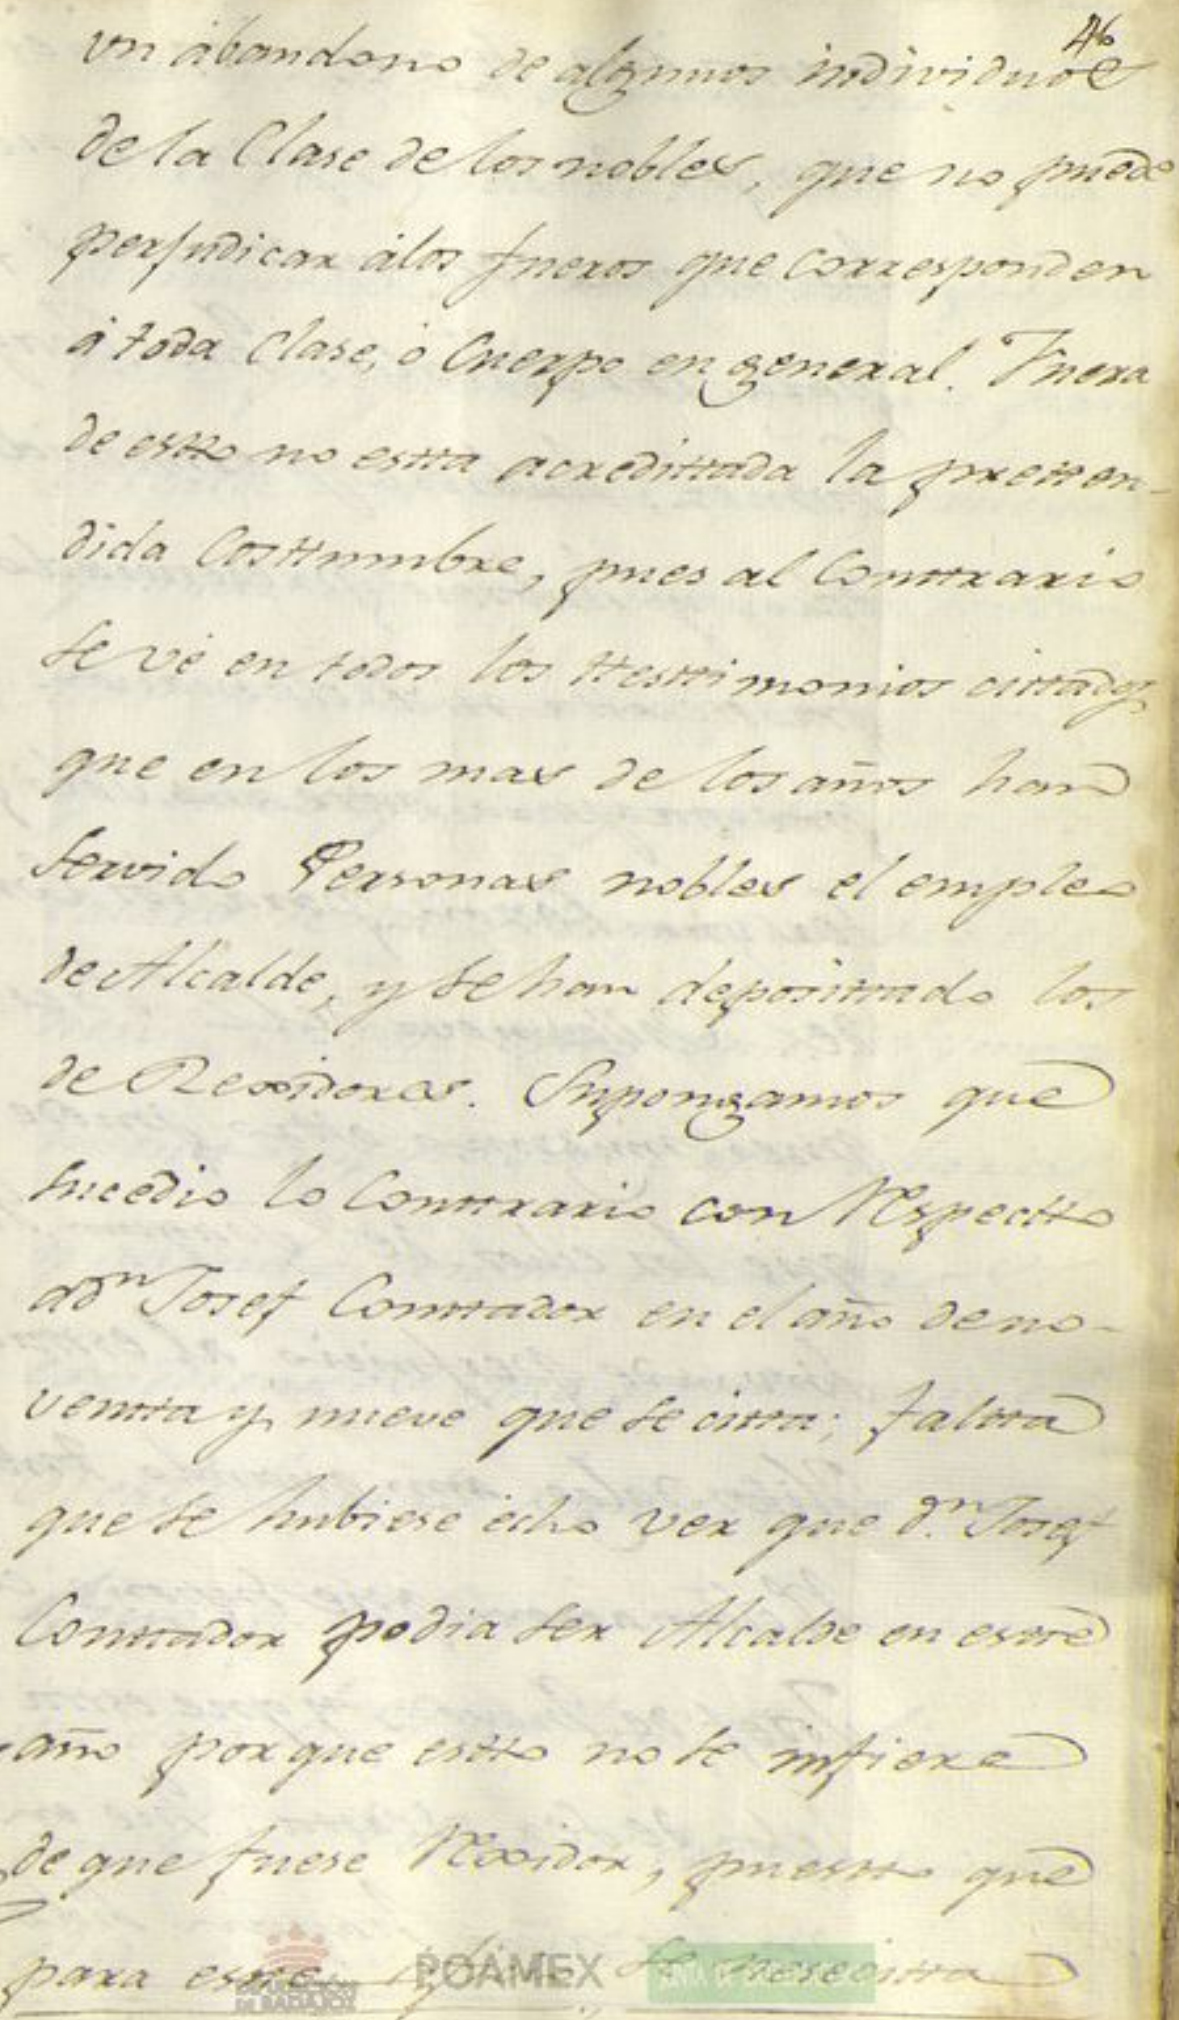 46
un abandono de algunos individuos
de la Clase de los nobles, que no puede
perjudicar álos fueros que corresponden
á toda Clase, ó Cuerpo en general. Fuera
de estto no estta acredittada la pretten-
dida Costtumbre, pues al Conttrario
se vé en todos los ttesttimonios cittados
que en los mas de los años han
servido Personas nobles el empleo
de Alcalde, y se han deposittado los
de Rexidores. Supongamos que
sucedio lo Conttrario con Respectto
a dn Josef Conttador en el año de no-
ventta y nueve que se citta; faltta
que se hubiese écho ver que dn. Josef
Conttador podia ser Alcalde en estte
año porque estto no se infiere
de que fuese Rexidor, puestto que
para estte se nesecitta
POAMEX